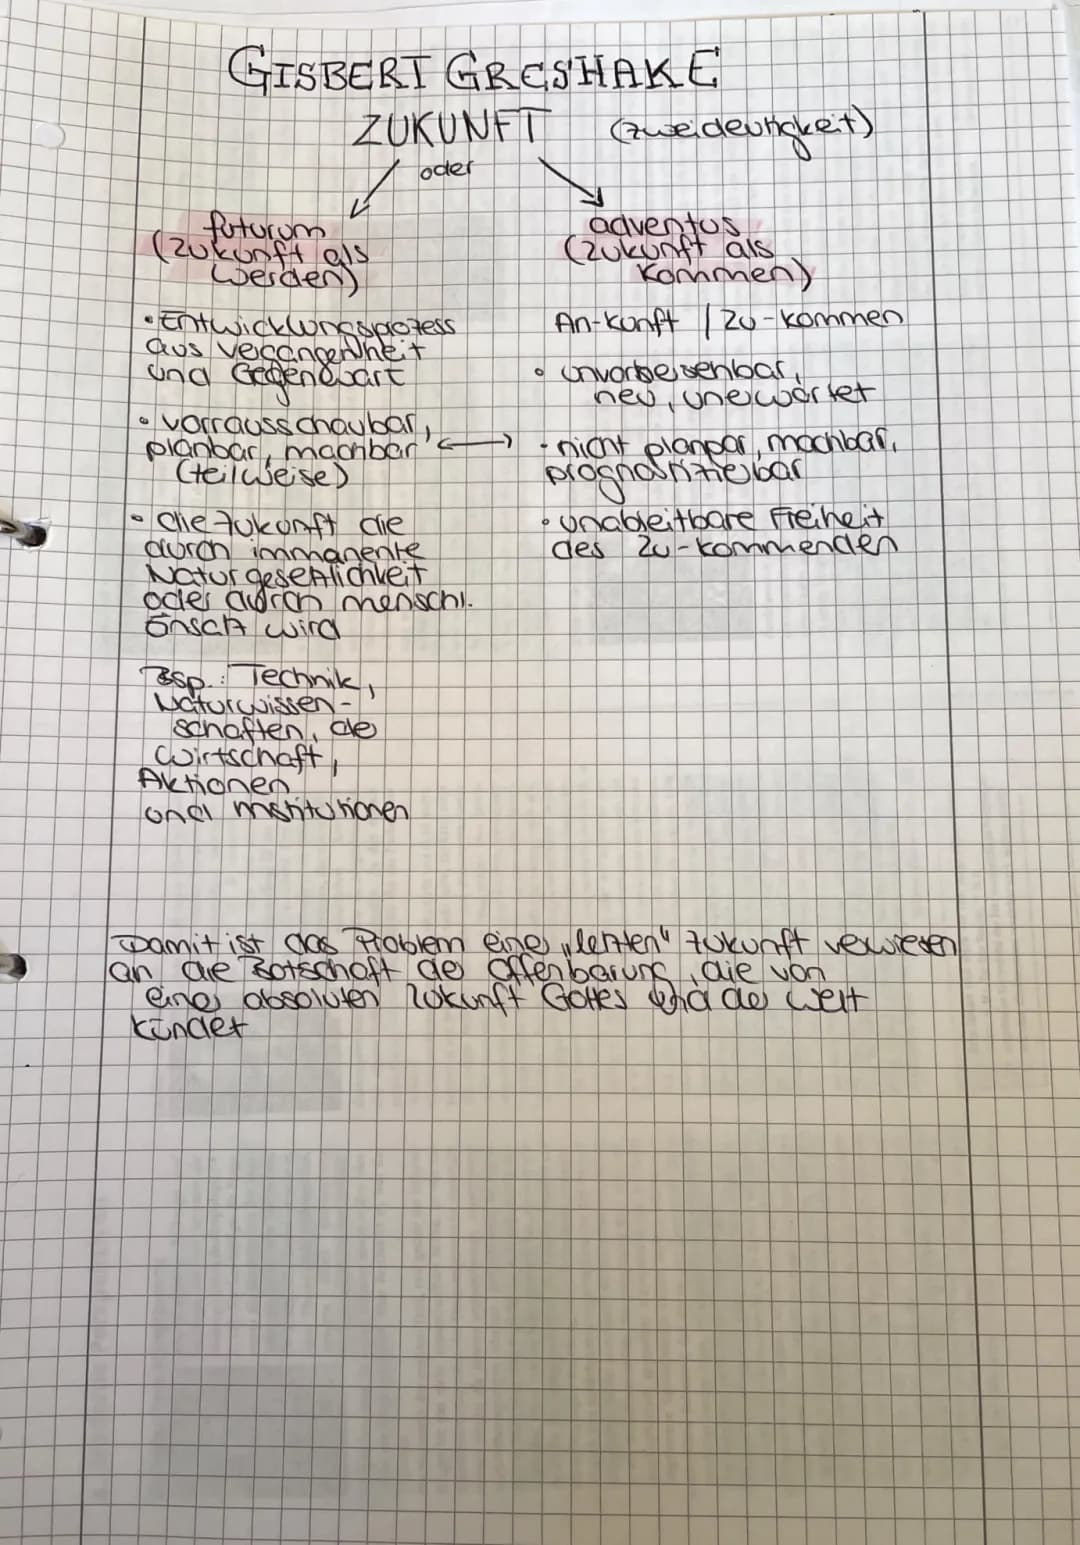 GISBERT GRESHAKE
ZUKUNFT (zweideutigkeit)
oder
futurum
(Zukunft als
Werden)
• Entwicklungsprozess
aus vergangenheit
und Gegenwart
• vorrausschaubar,
planbar, machbar
(teilweise)
• die Zukunft die
durch immanente
Naturgesetzlichkeit
oder durch menschl.
Einsatz wird
Bsp.: Technik,
Naturwissen-
schaften, der
Wirtschaft,
Aktionen
und Institutionen
adventus
(Zukunft als
Kommen)
An-kunft / Zu-kommen
• unvorhersehbar,
neu, unerwartet
• nicht planpar, machbar,
prognostizierbar
• unableitbare Freiheit
des Zu-kommenden
Damit ist das Problem einer „letzten" Zukunft verwiesen
an die Botschaft der Offenbarung, die von
einer absoluten Zukunft Gottes und der Welt
kündet